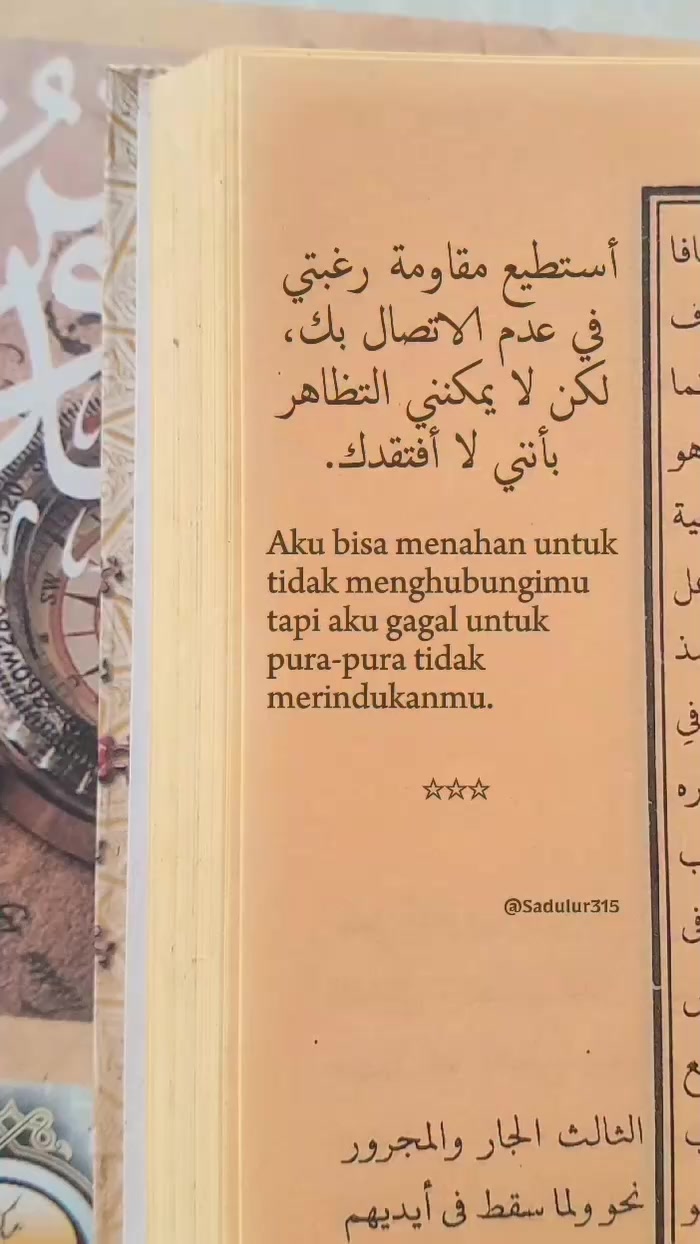 أستطيع مقاومة رغبتي
في عدم الاتصال بك،
لكن لا يمكنني التظاهر
بأنني لا أفتقدك.
Aku bisa menahan untuk
tidak menghubungimu
tapi aku gagal untuk
pura-pura tidak
merindukanmu.
☆☆☆
@Sadulur315
الثالث الجار والمجرور
نحو ولما سقط فى أيديهم
هو
فى
SW